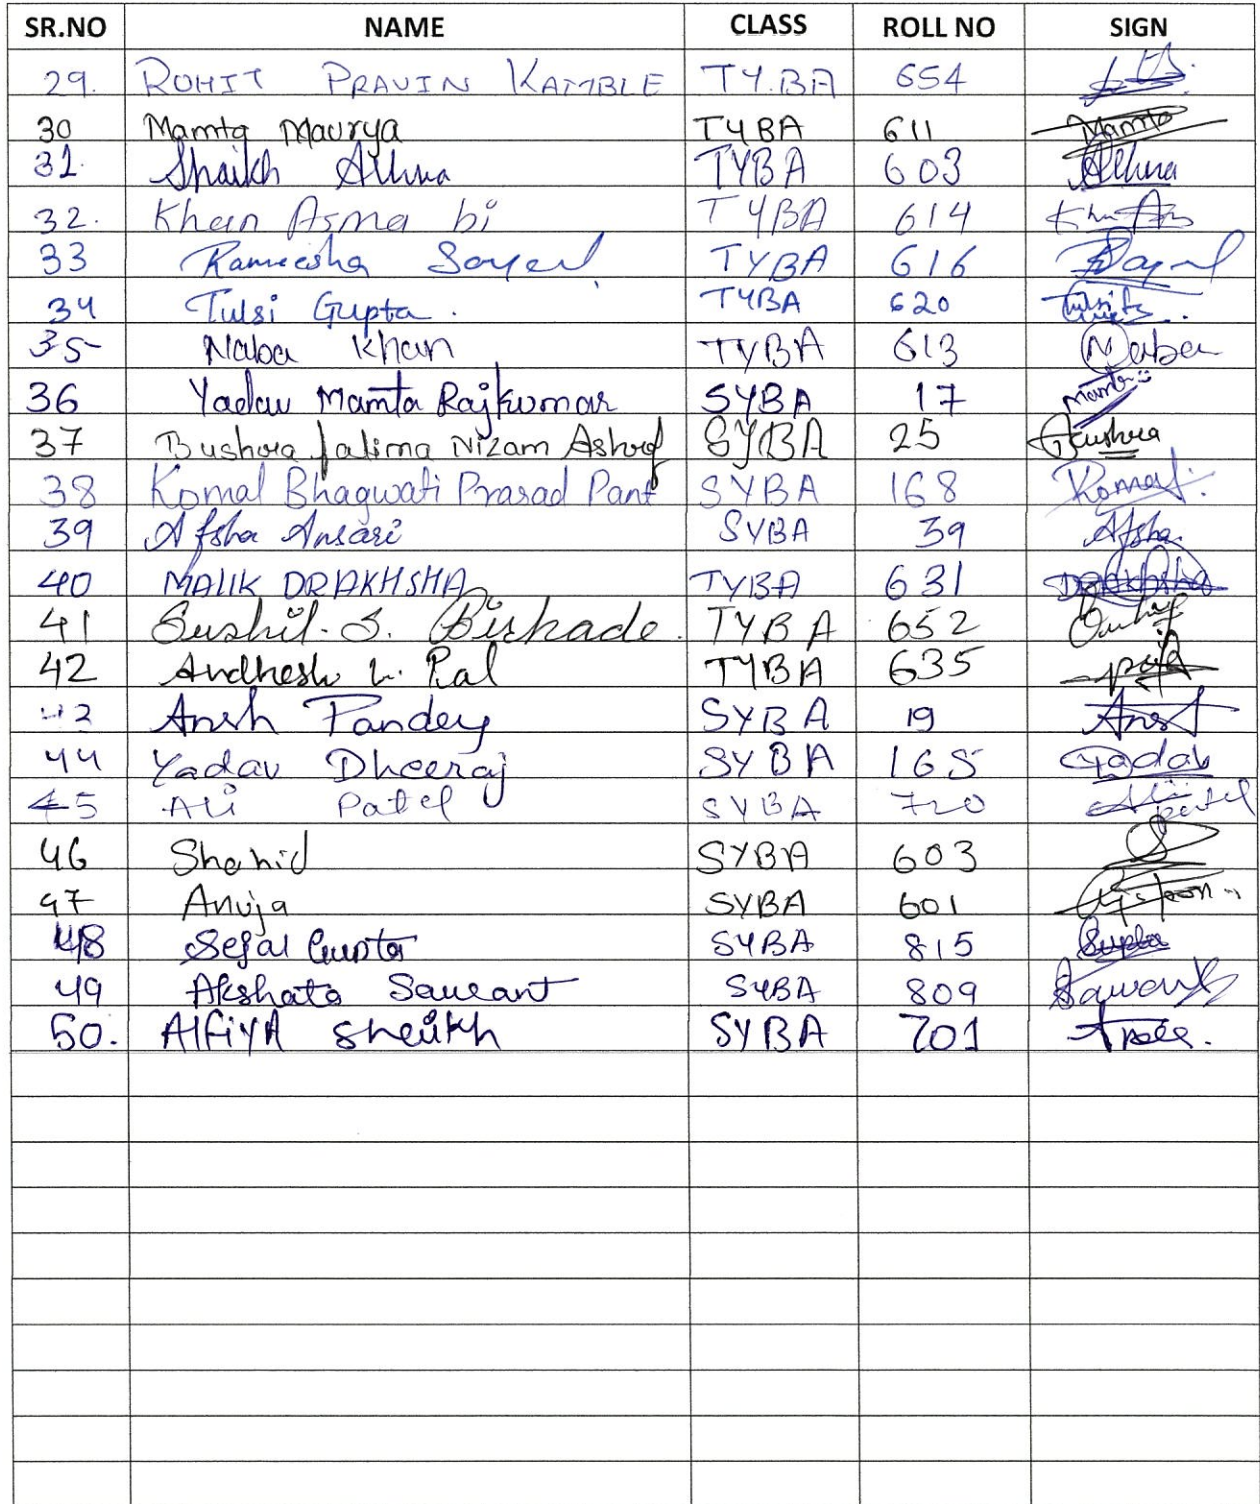 SR.NO NAME CLASS ROLL NO SIGN
29. ROHIT PRAVIN KAMBLE TY.BA 654
30 Mamta Maurya TYBA 611 Mamta
31. Shaikh TYBA 603
32. Khan Asma bi TYBA 614
33 Rameesha Sayed TYBA 616
34 Tulsi Gupta. TYBA 620 Tulsi
35 Naba Khan TYBA 613 Naba
36 Yadav Mamta Rajkumar SYBA 17 Mamta
37 Bushra fatima Nizam Ashraf SYBA 25 Bushra
38 Komal Bhagwati Prasad Pant SYBA 168 Komal.
39 Afsha Ansari SYBA 39 Afsha
40 MALIK DRAKHSHA TYBA 631 Drakhsha
41 Sushil. S. Birhade. TYBA 652
42 Avdhesh L. Pal TYBA 635
43 Ansh Pandey SYBA 19 Ansh
44 Yadav Dheeraj SYBA 165 Yadav
45 Ali Patel SYBA 720 Ali Patel
46 Shahid SYBA 603
47 Anuja SYBA 601
48 Sejal Gupta SYBA 815 Gupta
49 Akshata Sawant SYBA 809 Sawant
50. AlFiYA Sheikh SYBA 701